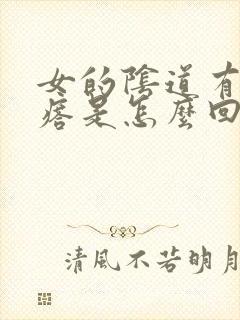 女的陰道有
痞是怎麼回
清風不若明月